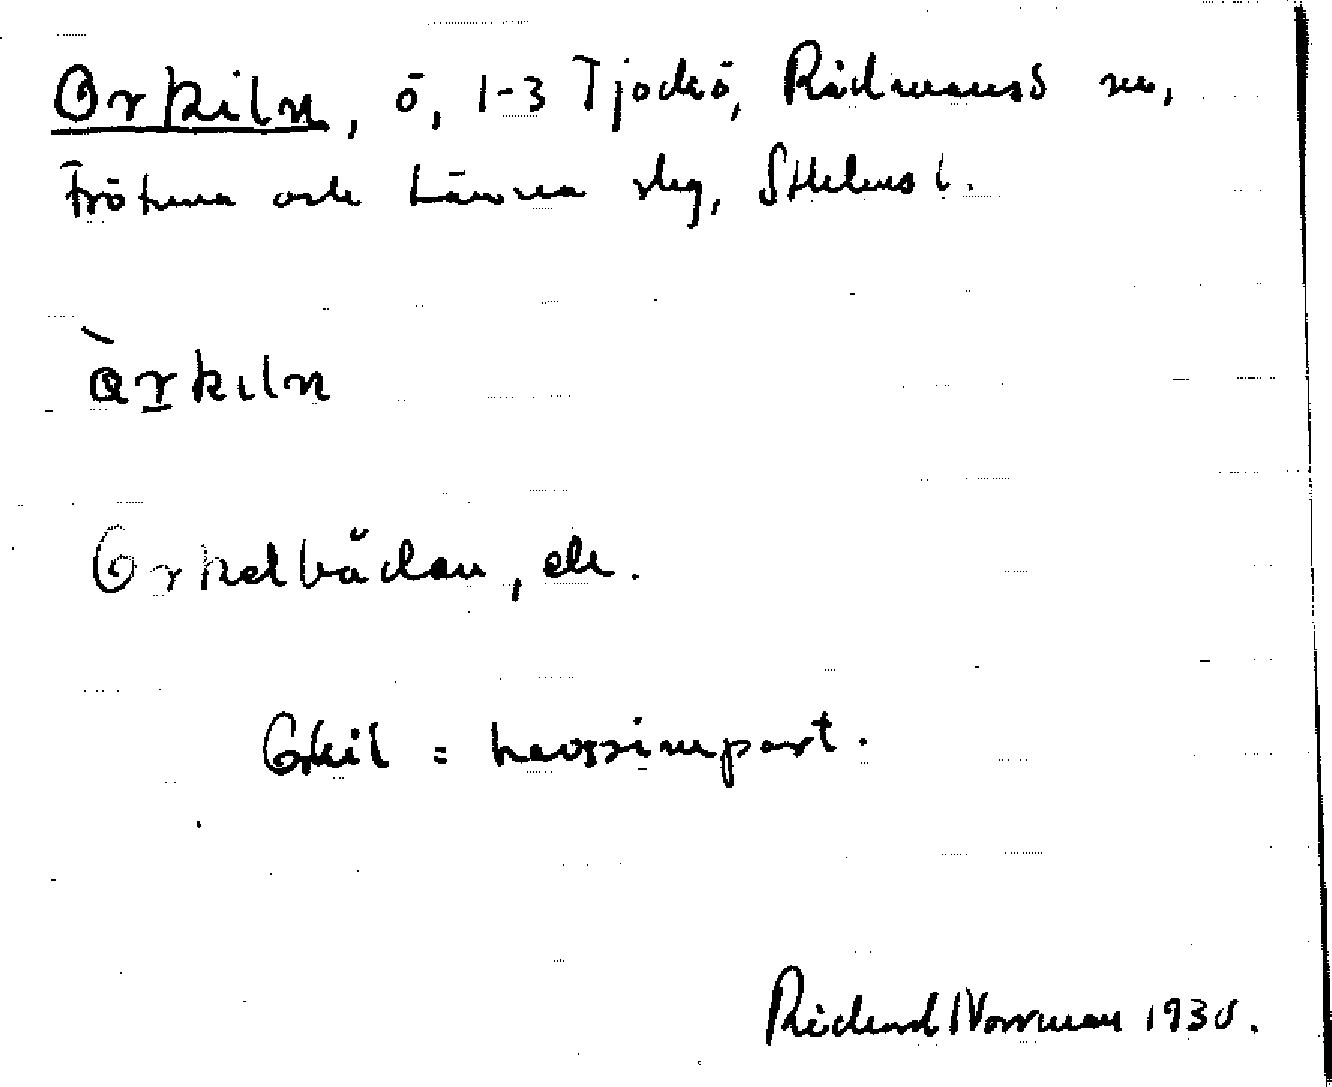 Orkiln, ö, 1-3 Tjockö, Rådmansö sn,
Frötuna och Länna slg, Sthlms l.
òrkiln
Orkelbådan, ek.
Orkil = havssimpart.
Rickard Norrman 1930.